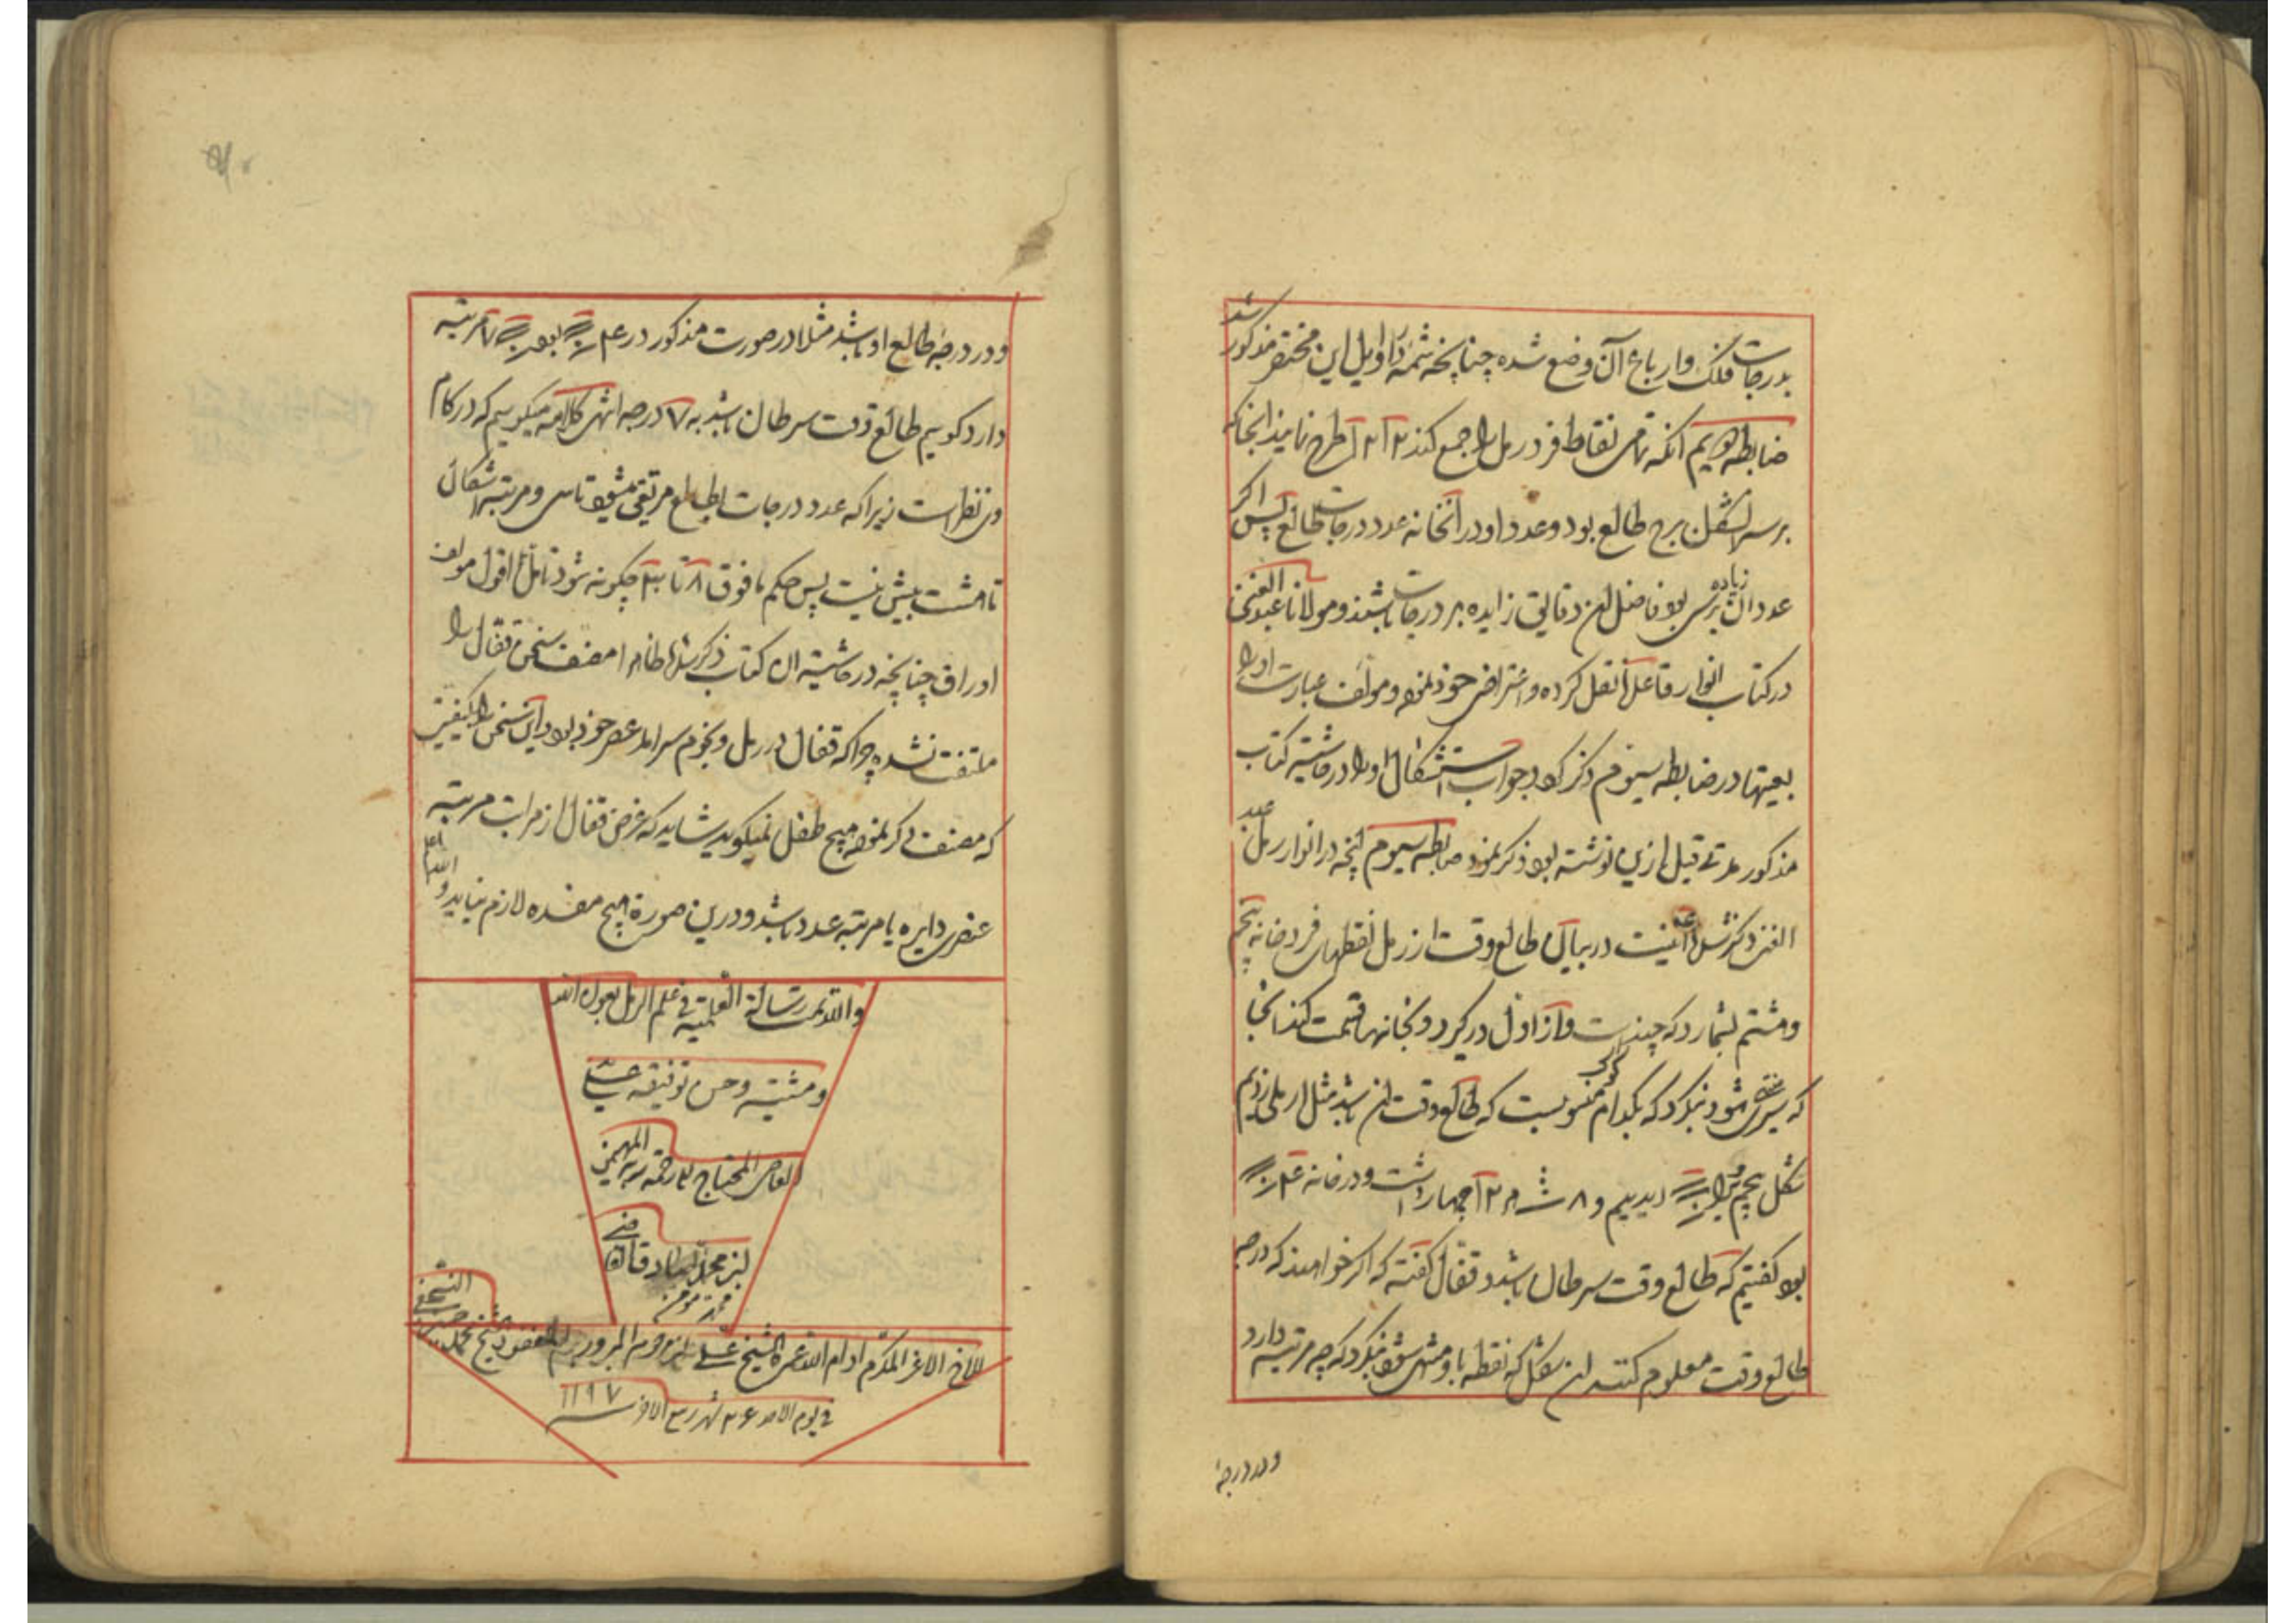 بدرجات فلک و ارباع آن وضع شده چنانچه شمهٔ در اوایل این مختصر مذکور شد
ضابطه دویم آنکه تمامی نقاط فرد رمل را جمع کند ۱۲ ۱۲ طرح نمایند انجا که
برسد شکل برج طالع بود و عدد او در آنخانه عدد درجات طالع پس اگر
عدد آن زیاده برسی بود فاضل آن دقایق زایده بر درجات باشند و مولانا عبد الغنی
در کتاب انوار نقل کرده و اعتراض خود نموده و مولف عبارت او را
بعینها در ضابطه سیوم ذکر کرد و جواب استشکال او را در حاشیه کتاب
مذکور مدتے قبل ازین نوشته بود ذکر نمود ضابطه سیوم آنچه در انوار رمل عبد
الغنی ذکر شد در بیان طالع وقت از رمل نقطهای فرد خانه پنجم
و هشتم بشمارد که چندست و از اول درگیرد و بخانها قسمت کند انجا
که سپری شود بنگرد که بکدام کوکب منسوبست که طالع وقت آن باشد مثلا رملی زدیم
شکل پنجم را دیدیم و ۸ چهار داشت و در خانه ۴
بود گفتیم که طالع وقت سرطان باشد و قفال گفته که اگر خواهند که درجه
طالع وقت معلوم کنند آن شکل که نقطه باو منتهی شود بنگرد که چه مرتبه دارد
ودر درجهٔ
ودر درجهٔ طالع او باشد مثلا در صورت مذکور در ۴ بود ۷ مرتبه
دارد کوییم طالع وقت سرطان باشد به ۷ درجه انتهی کلامه میکوییم که در کلام
وی نظر است زیرا که عدد درجات طالع مرتقی میشود تا سی و مرتبه اشکال
تا هشت بیش نیست پس حکم ما فوق ۸ تا ۳۰ چکونه شود تأمل اقول مولف
اوراق چنانچه در حاشیه آن کتاب ذکر شد ظاهرا مصنف سخن قفال را
ملتفت نشده چرا که قفال در رمل و نجوم سرامد عصر خود بود و این سخن را بکیفیتی
که مصنف ذکر نموده هیچ طفل نمیکوید شاید که غرض قفال از مراتب مرتبه
عنصری دایره یا مرتبه عدد باشد و درین صورة هیچ مفسده لازم نیاید و الله اعلم
والله تمت رسالة فی علم الرمل بعون الله
و مشیته و حسن توفیقه علی ید
العاصی المحتاج الی رحمة ربه المهیمن
ابن محمد قاضی
محمد مومن
للاخ الاعز المکرم ادام الله عمره الشیخ علی ابن المرحوم المبرور المغفور الشیخ محمد النجفی
فی یوم الاحد ۲۶ شهر ربیع الاخر سنه ۱۱۹۷